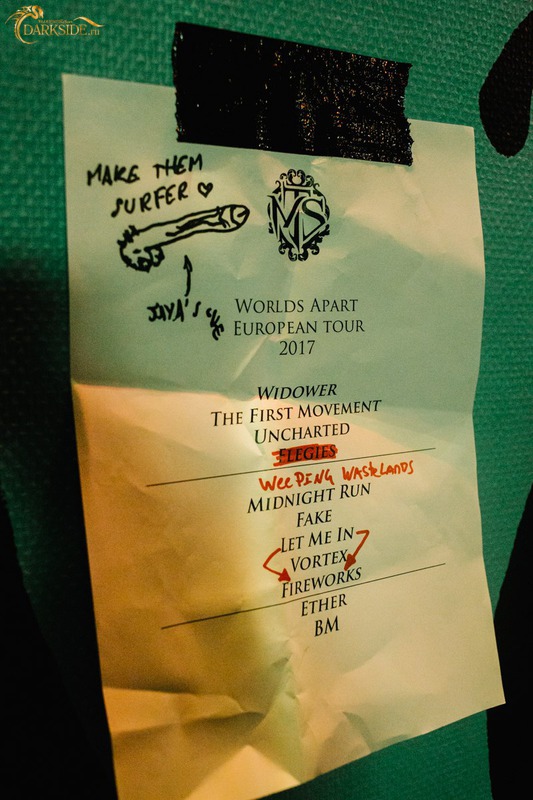 DARKSIDE.ru
MAKE THEM
SURFER ♡
JAYA'S
MTS
WORLDS APART
EUROPEAN TOUR
2017
WIDOWER
THE FIRST MOVEMENT
UNCHARTED
ELEGIES
WEEPING WASTELANDS
MIDNIGHT RUN
FAKE
LET ME IN
VORTEX
FIREWORKS
ETHER
BM